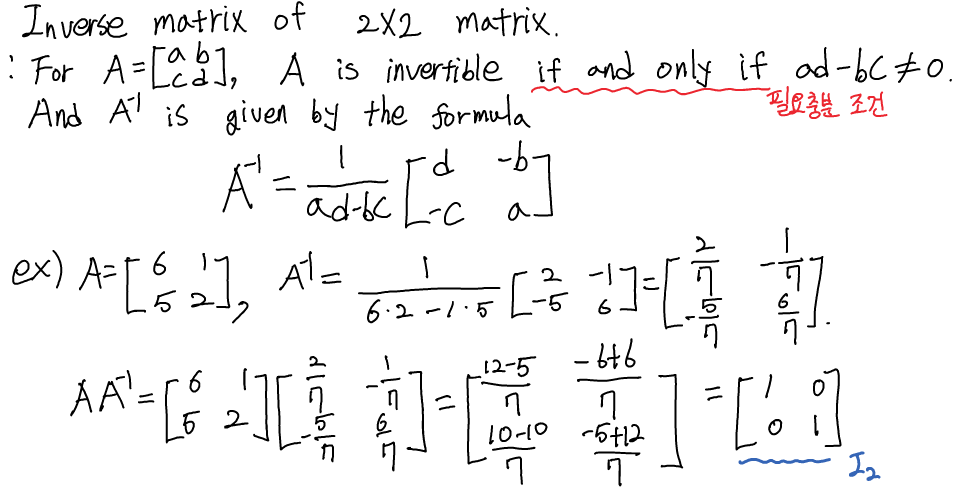 Inverse matrix of 2X2 matrix.
: For A=[a b; c d], A is invertible if and only if ad-bc≠0.
필요충분 조건
And A⁻¹ is given by the formula
A⁻¹ = 1/(ad-bc) [d -b; -c a]
ex) A=[6 1; 5 2], A⁻¹= 1/(6·2-1·5) [2 -1; -5 6]=[2/7 -1/7; -5/7 6/7].
AA⁻¹=[6 1; 5 2][2/7 -1/7; -5/7 6/7]=[(12-5)/7 (-6+6)/7; (10-10)/7 (-5+12)/7] =[1 0; 0 1]
I₂